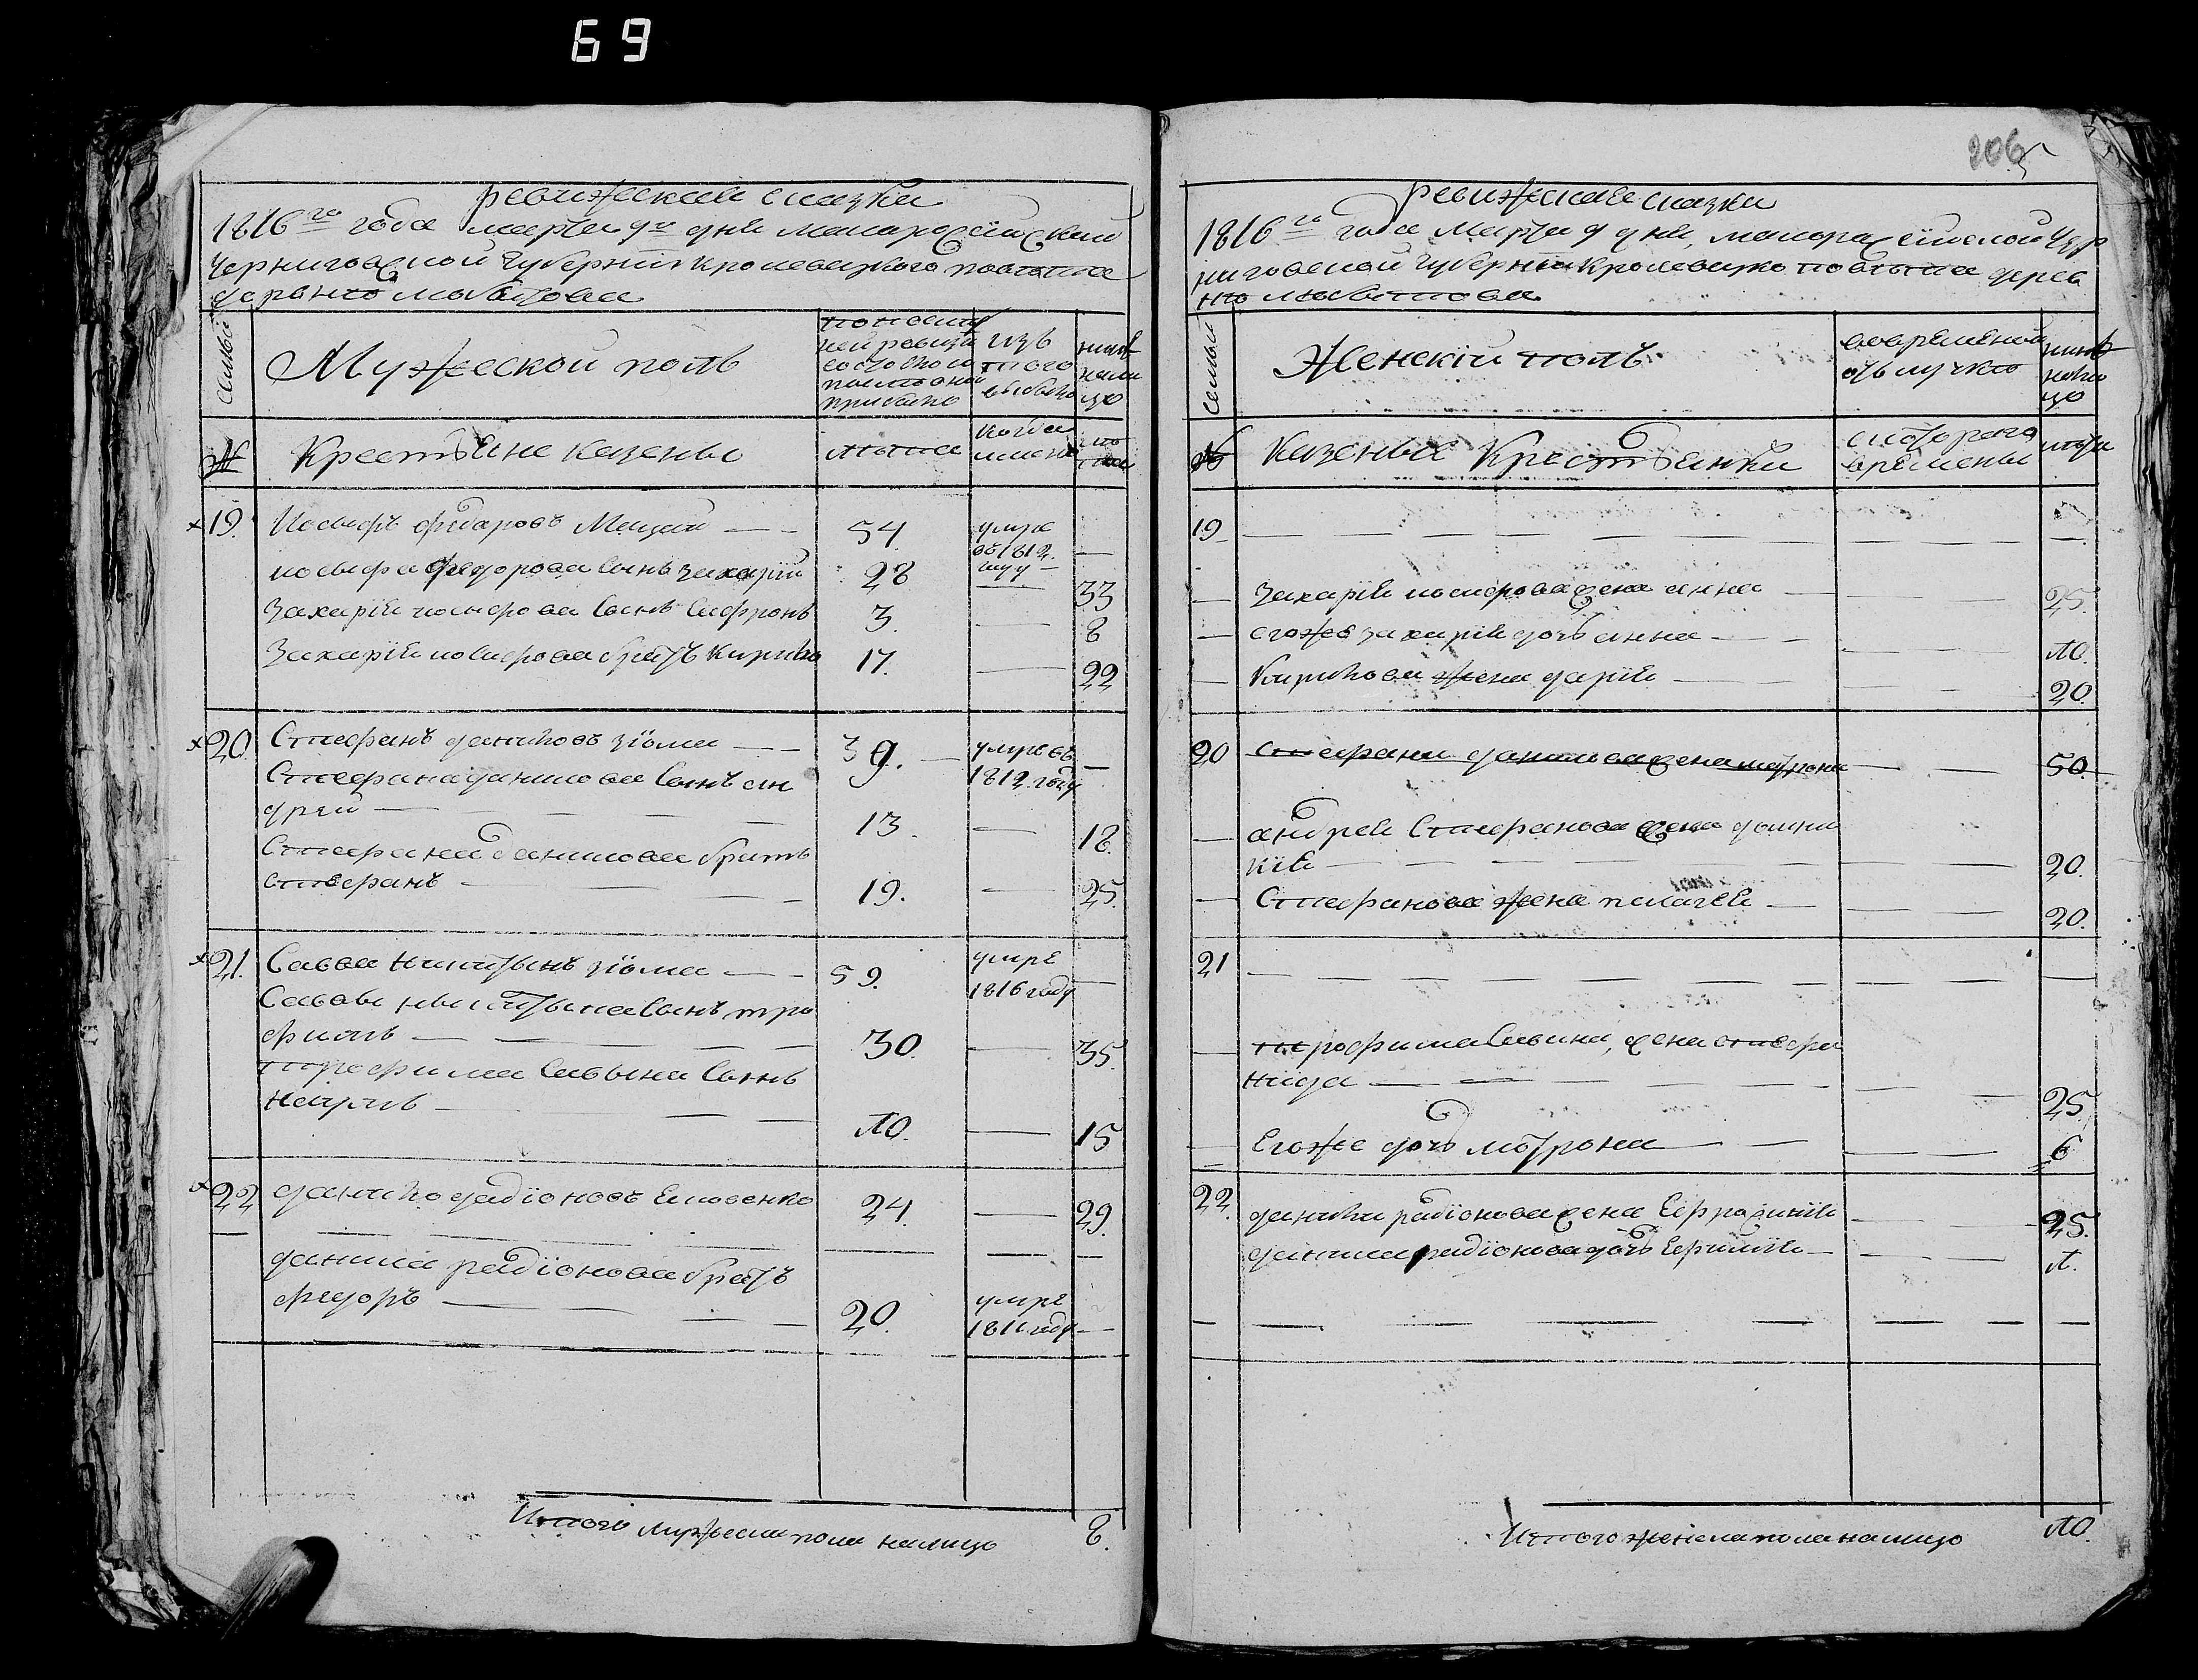 69
ревижская сказка
1816го года марта 9го дня малоросейской
Черниговской Губернии Кролевицкого повета
деревня
Семьи
Мужеской полъ
по последней ревизии состояло и после оной прибыло
изъ того выбыло
ныне на лицо
№
Крестьяне казенны
лета
когда именно
лета
19. Иосифъ Фидаровъ — — 54. умре въ 1812 году —
иосифа федорова сынъ захарiй 28 — 33
Захарiя иосифова сынъ Сафронъ 3. — 8
Захарiя иосифова братъ Кирило 17. — 22
20. Стефанъ даниловъ зiома — — 39. — умре въ 1812 году —
Стефана данилова сынъ ан
дрей — — — — 13. — 18.
Стефана данилова братъ
стефанъ — — — 19. — 25.
21. Савва Никитынъ зiома — — 59. умре 1816 году —
Саввы никитына сынъ тро
фимъ — — — — 30. — 35.
Трофима Савына сынъ
наумъ — — — 10. — 15
22 данило радiоновъ 24. — 29.
— — — — — — —
данила радiонова братъ
федоръ — — — 20. умре 1811 году —
Итого мужеска пола налицо 8.
206
ревижская сказка
1816го года марта 9 дня, малоросейской Чер
ниговской Губернии Кролевицко повета дерев
ня
Семьи
Женскiй полъ
во временной отлучке
ныне налицо
№
Казенные Крестьянки
с которого времены
лета
19 — — — — — — — —
— Захарiя иосифова жена анна — — — 25.
— егоже захарiя дочъ анна — — — — 10.
— Кирилова жена дарiя — — — 20.
20 Стефана данилова жена матрона — — 50.
— андрея Стефанова жена
кiя — — — — — 20.
— Стефанова жена пелагея — — — 20.
21 — — — — — — — —
— трофима Савина, жена стефа
нида — — — — — — 25
— Егоже дочъ мотрона — — — — 6
22. данила радiонова жена Ефросинiя — — 25.
данила радiонова дочъ Ефимiя — — — 1.
— — — — — — — —
Итого женска пола налицо 10.